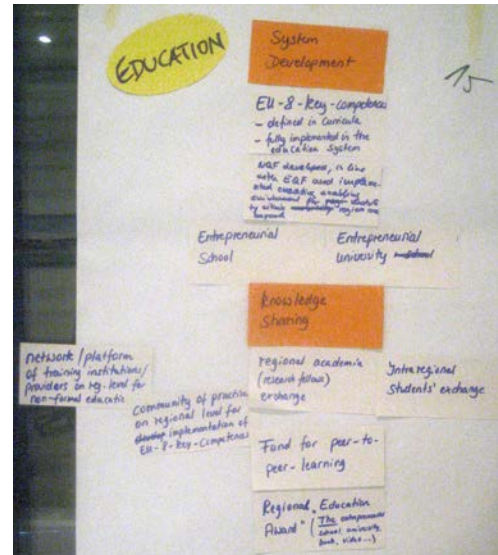 EDUCATION
System
Development
15
EU-8-key-competences
- defined in curricula
- fully implemented in the
education system
NQF developed, in line
with EQF and implemented
creative enabling
environment for
region and
beyond
Entrepreneurial
School
Entrepreneurial
University
Knowledge
Sharing
network/platform
of training institutions/
providers on reg. level for
non-formal educatio
Community of practice
on regional level for
implementation of
EU-8-Key-Competences
regional academia
(research fellows)
exchange
Intraregional
Students' exchange
Fund for peer-to-
peer-learning
Regional "Education
Award" (The entrepreneur
school, university,
book, video...)